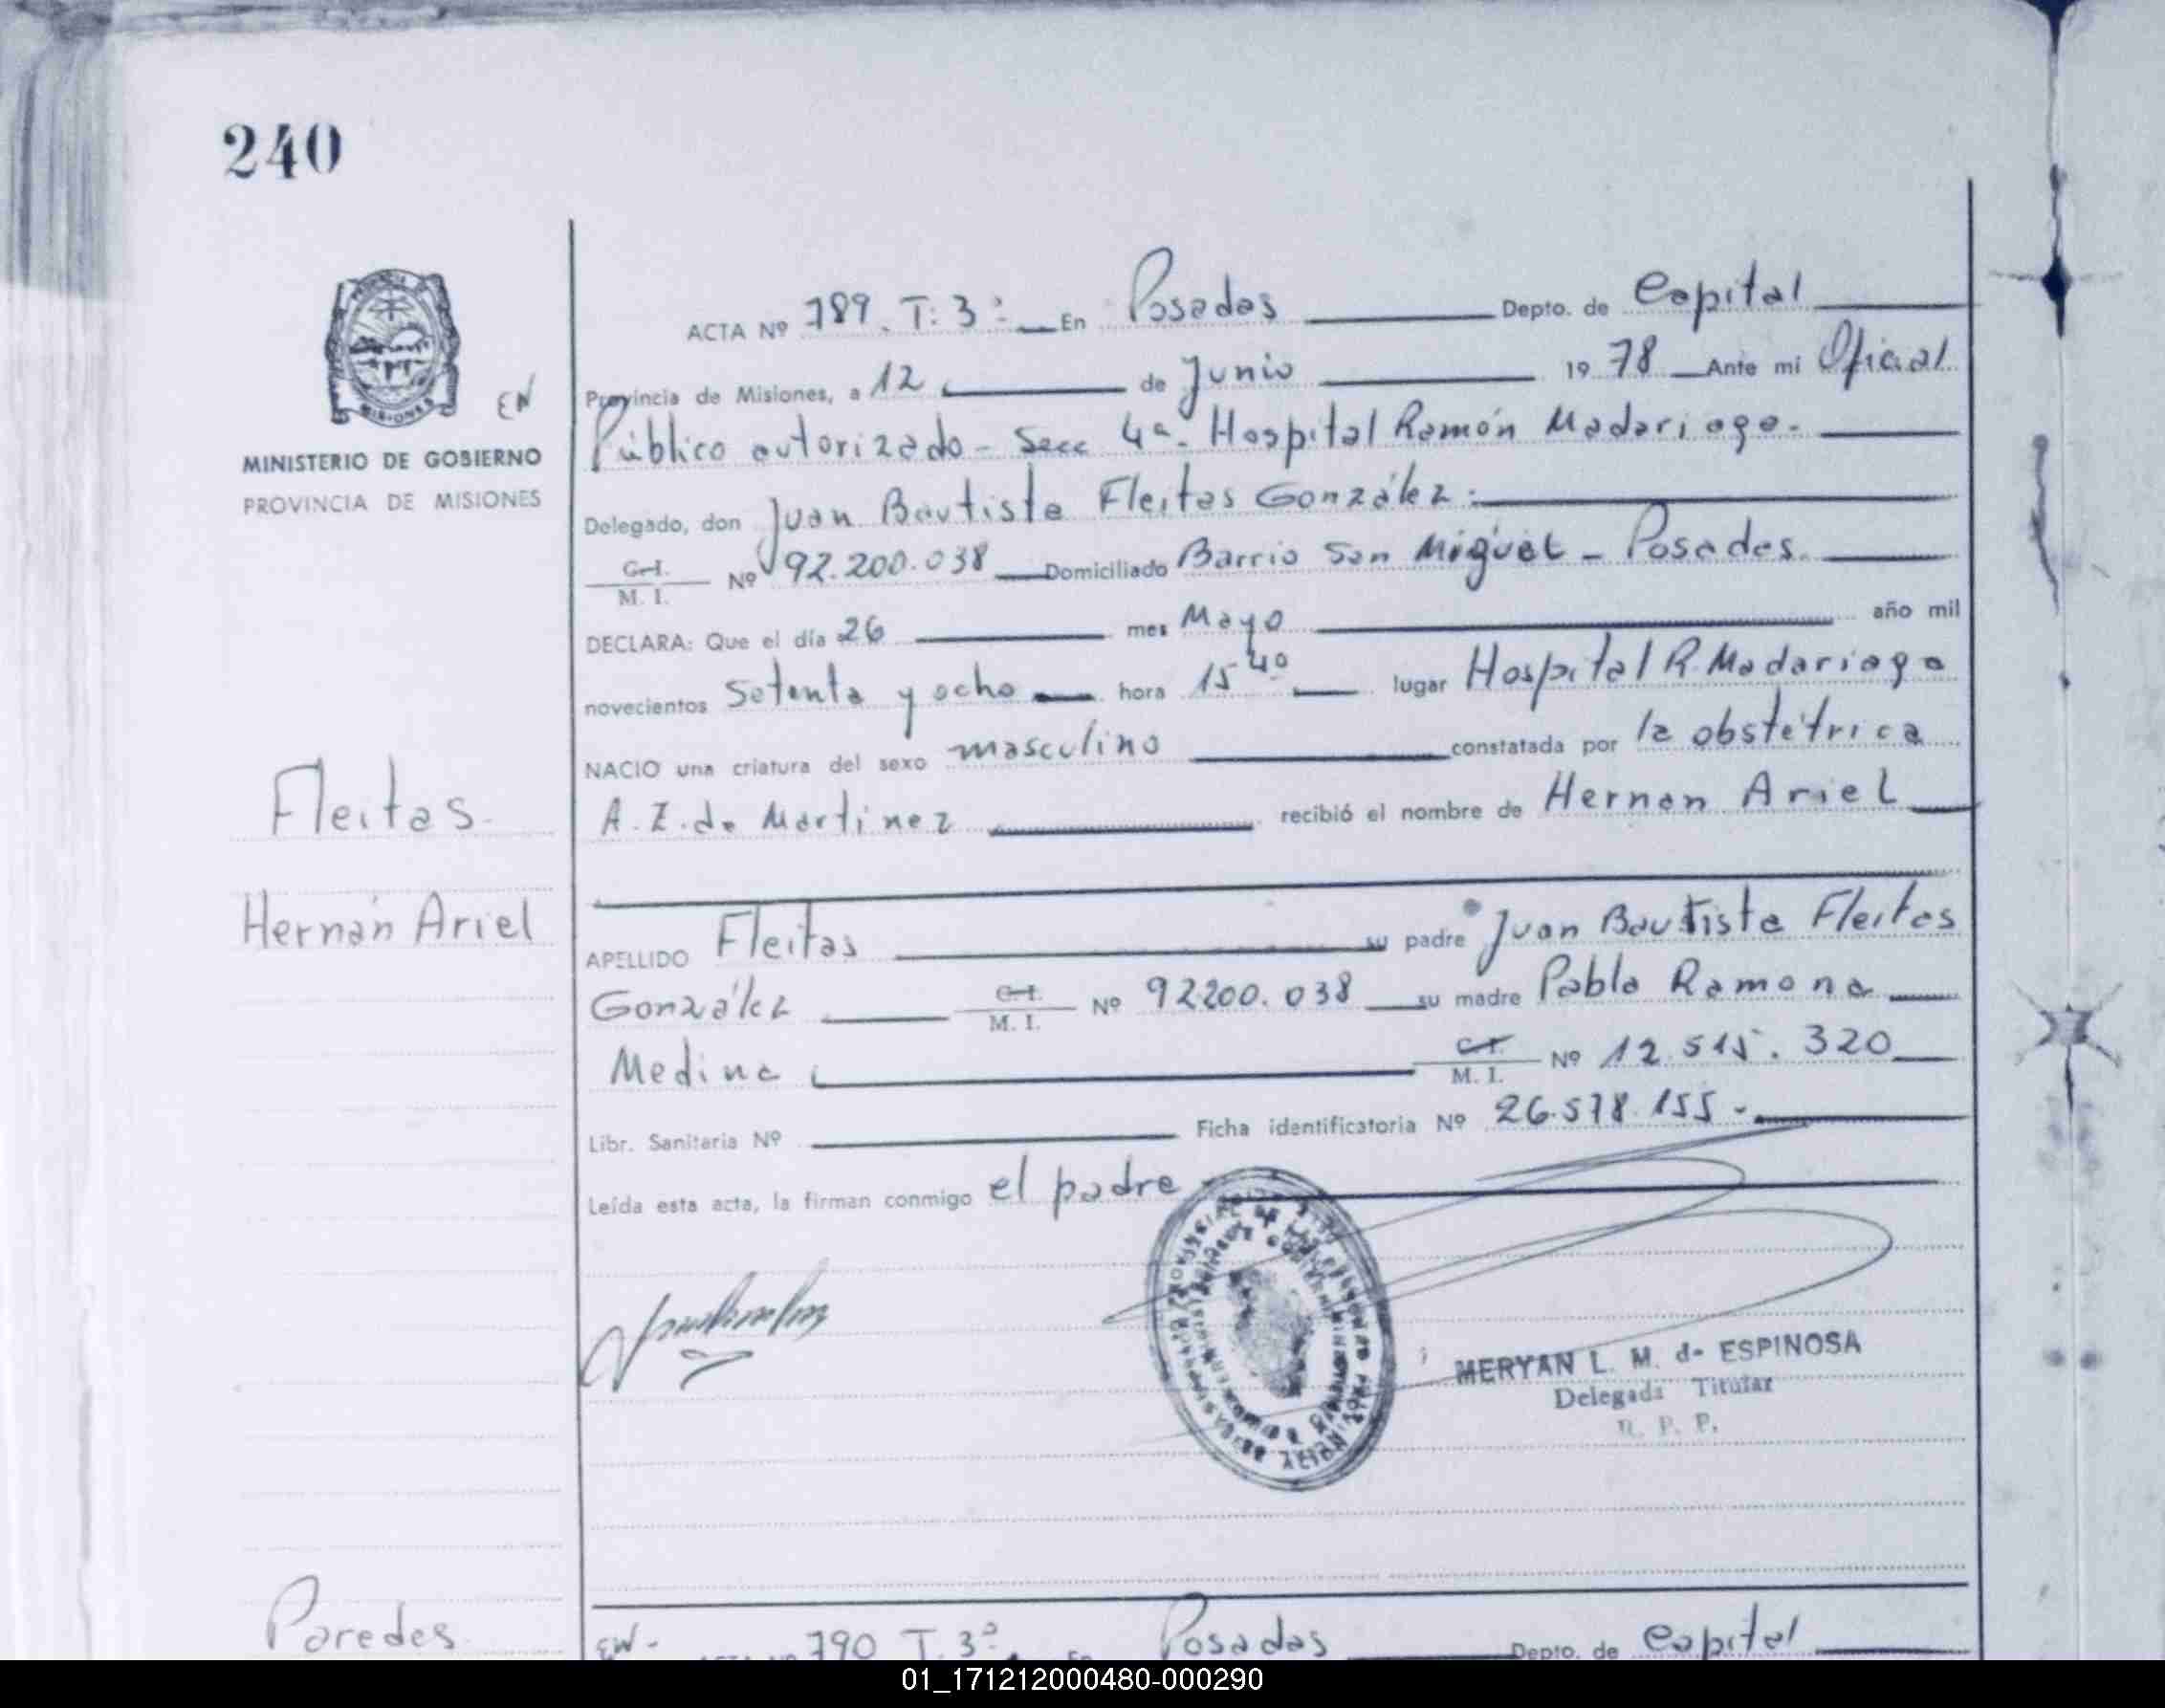 240
MISIONES
EN
MINISTERIO DE GOBIERNO
PROVINCIA DE MISIONES
Fleitas.
Hernán Ariel
ACTA Nº 789. T: 3ª En Posadas Depto. de Capital
Provincia de Misiones, a 12 de Junio 1978 Ante mi Oficial
Público autorizado - Secc 4ª. Hospital Ramón Madariaga.-
Delegado, don Juan Bautista Fleitas González.
C. I. M. I. Nº 92.200.038 Domiciliado Barrio San Miguel - Posadas.
DECLARA: Que el día 26 mes Mayo año mil
novecientos Setenta y ocho hora 15 40 lugar Hospital R. Madariaga
NACIO una criatura del sexo masculino constatada por la obstétrica
A. Z. de Martinez recibió el nombre de Hernan Ariel
APELLIDO Fleitas su padre Juan Bautista Fleitas
González C. I. M. I. Nº 92200.038 su madre Pabla Ramona
Medina C. I. M. I. Nº 12.515.320
Libr. Sanitaria Nº Ficha identificatoria Nº 26.578.155.-
Leída esta acta, la firman conmigo el padre
MERYAN L. M. de ESPINOSA
Delegada Titular
R. P. P.
Paredes
EN - ACTA Nº 790 T. 3ª. En Posadas Depto. de Capital
01_171212000480-000290